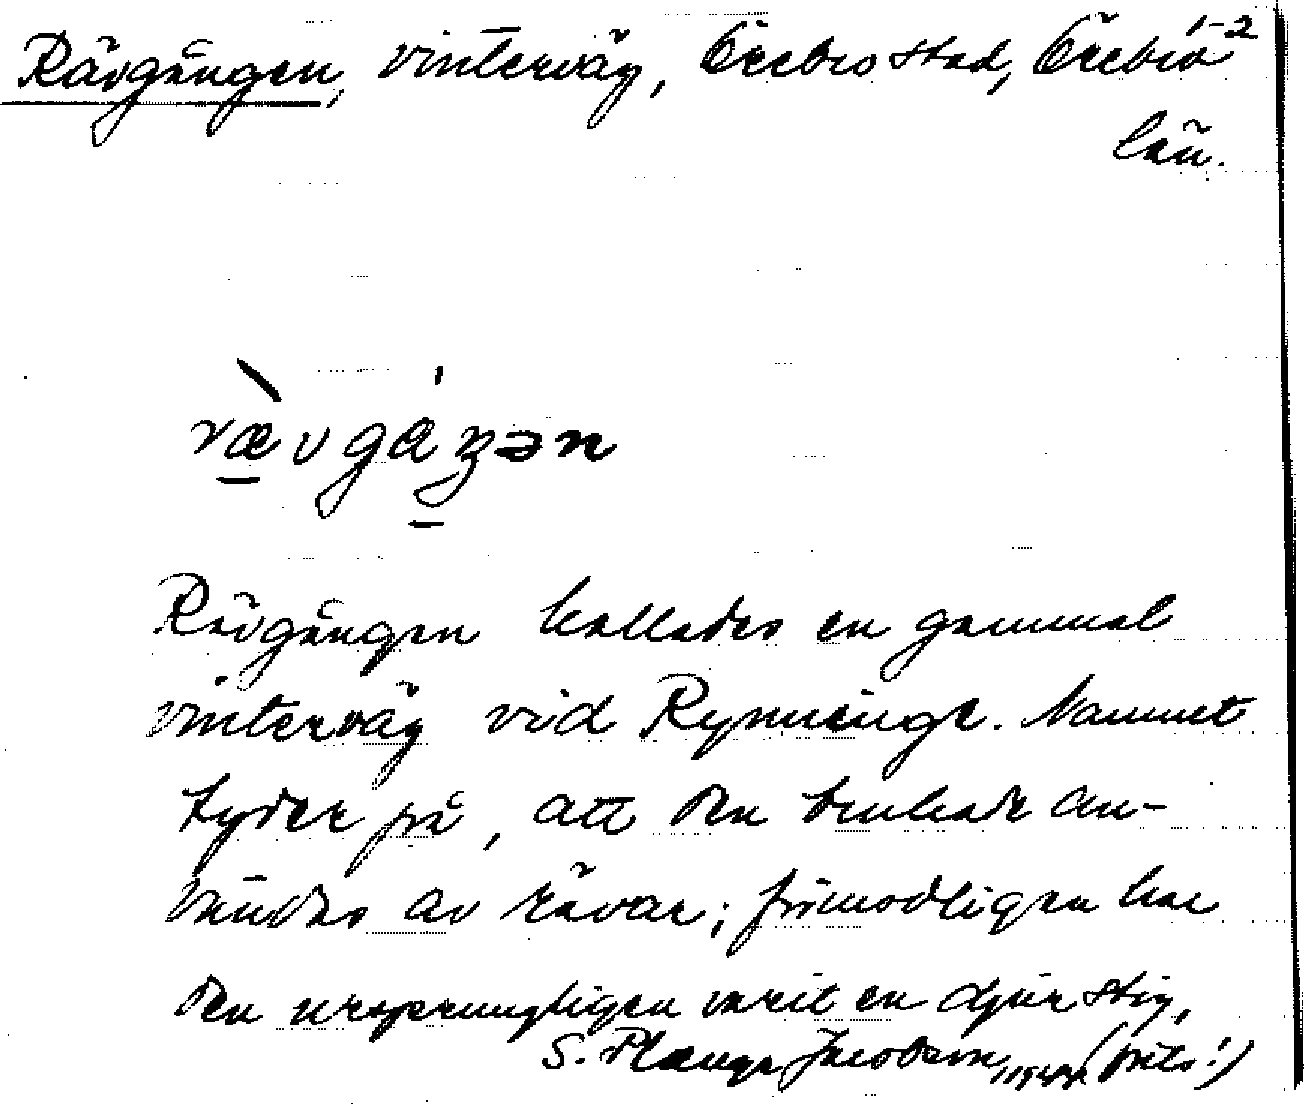 Rävgången, vinterväg, Örebro stad, Örebro 1-2
län.
ræ̀vgáŋən
Rävgången kallades en gammal
vinterväg vid Rynninge. Namnet
tyder på, att den brukade an-
vändas av rävar; förmodligen har
den ursprungligen varit en djurstig,
S. Plænge Jacobson